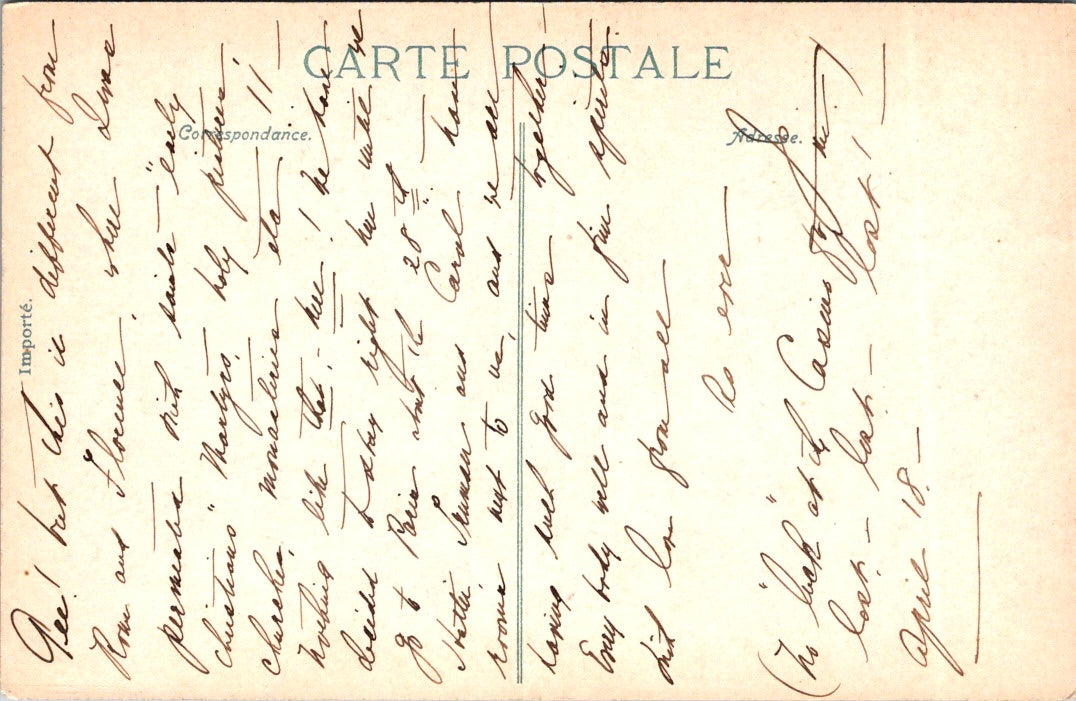 CARTE POSTALE
Correspondance.
Adresse.
Importé.
Gee! but this is different from
Rome and Florence, where
permeated with saints - "early
christians" Martyrs, holy pictures,
churches, monasteries etc. !!
Nothing like that - here! We have
decided to stay right here until we
go to Paris about the 28th.
Hattie and Carol have
rooms next to us, and we are
having such good times together.
Every body well and in fine spirits.
With love from all
As ever
(No "luck" at the Casino for me)
lost - lost - lost!
April 18 -